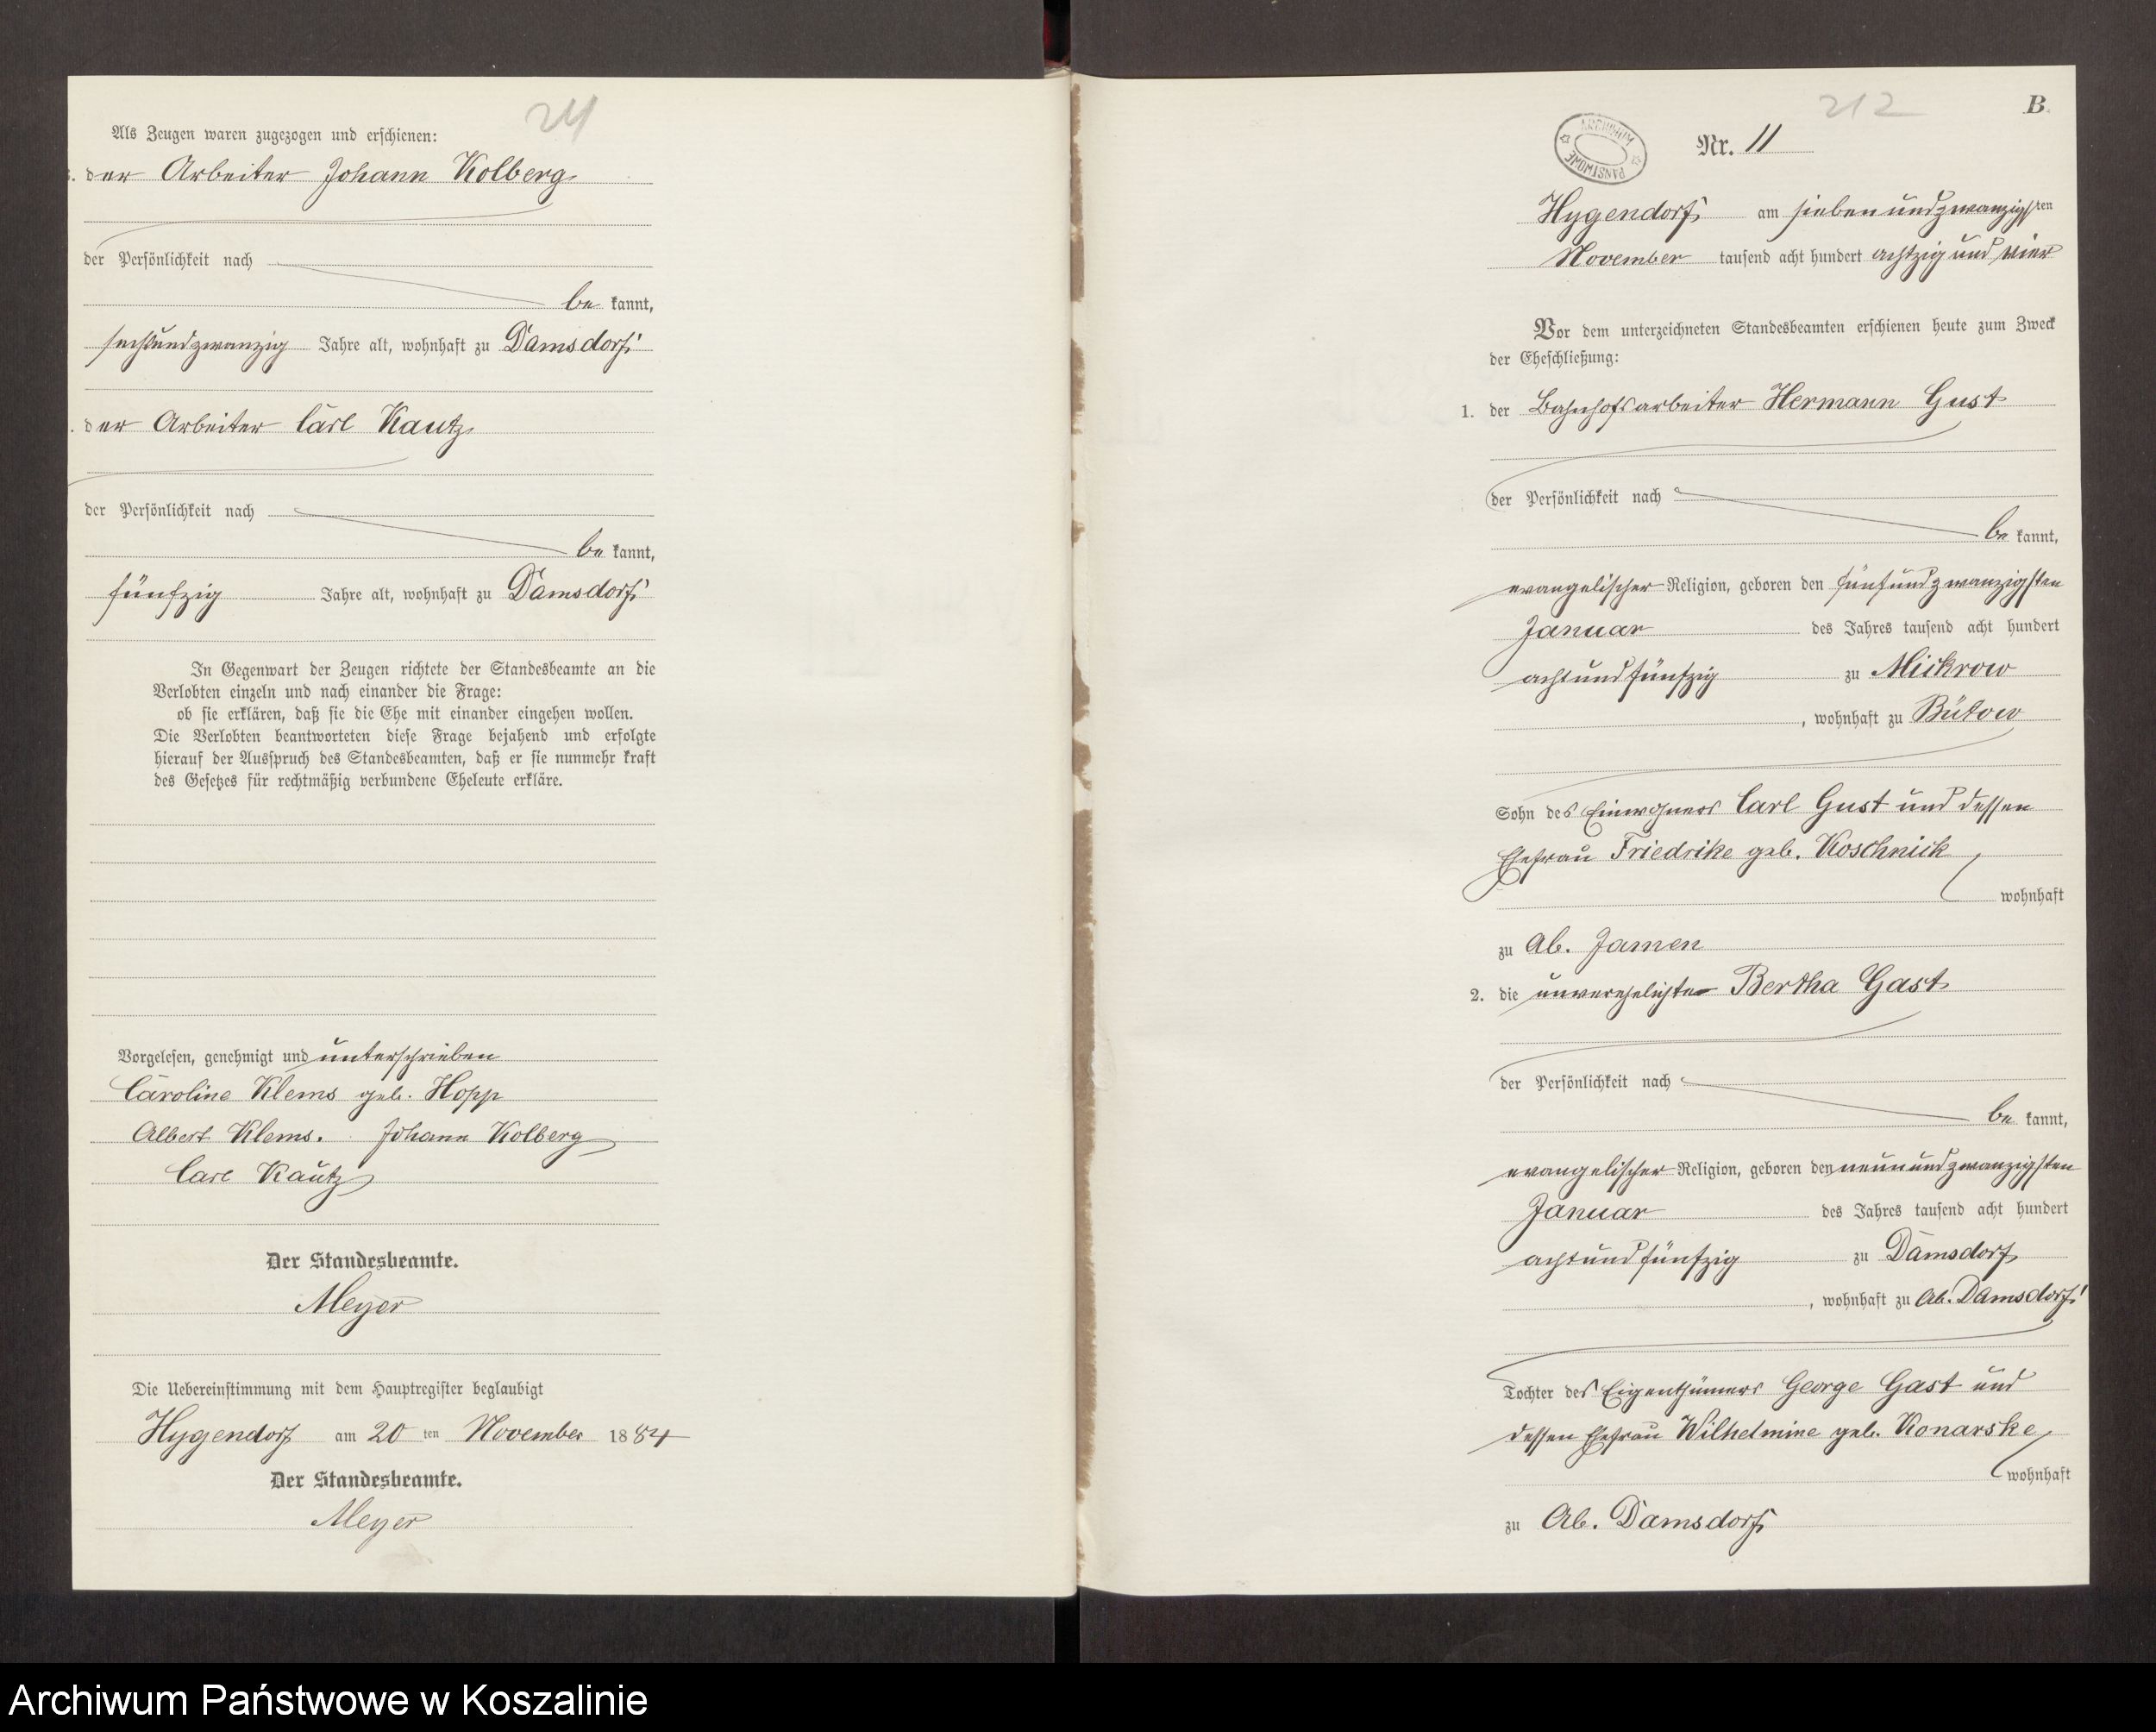 24
Als Zeugen waren zugezogen und erschienen:
3. der Arbeiter Johann Kolberg
der Persönlichkeit nach
be kannt,
sechsundzwanzig Jahre alt, wohnhaft zu Damsdorf
. der Arbeiter Carl Kautz
der Persönlichkeit nach
be kannt,
fünfzig Jahre alt, wohnhaft zu Damsdorf
In Gegenwart der Zeugen richtete der Standesbeamte an die
Verlobten einzeln und nach einander die Frage:
ob sie erklären, daß sie die Ehe mit einander eingehen wollen.
Die Verlobten beantworteten diese Frage bejahend und erfolgte
hierauf der Ausspruch des Standesbeamten, daß er sie nunmehr kraft
des Gesetzes für rechtmäßig verbundene Eheleute erkläre.
Vorgelesen, genehmigt und unterschrieben
Caroline Klems geb. Hopp
Albert Klems. Johann Kolberg
Carl Kautz
Der Standesbeamte.
Meyer
Die Uebereinstimmung mit dem Hauptregister beglaubigt
Hygendorf am 20 ten November 1884
Der Standesbeamte.
Meyer
212
B.
ARCHIWUM PAŃSTWOWE
Nr. 11
Hygendorf am siebenundzwanzigsten
November tausend acht hundert achtzig und vier
Vor dem unterzeichneten Standesbeamten erschienen heute zum Zweck
der Eheschließung:
1. der Bahnhofsarbeiter Hermann Gust
der Persönlichkeit nach
be kannt,
evangelischer Religion, geboren den fünfundzwanzigsten
Januar des Jahres tausend acht hundert
achtundfünfzig zu Mickrow
, wohnhaft zu Bütow
Sohn des Einwohners Carl Gust und dessen
Ehefrau Friedrike geb. Koschnick
wohnhaft
zu Ab. Jamen
2. die unverehelichte Bertha Gast
der Persönlichkeit nach
be kannt,
evangelischer Religion, geboren den neunundzwanzigsten
Januar des Jahres tausend acht hundert
achtundfünfzig zu Damsdorf
, wohnhaft zu Ab. Damsdorf
Tochter des Eigenthümers George Gast und
dessen Ehefrau Wilhelmine geb. Konarske
wohnhaft
zu Ab. Damsdorf
Archiwum Państwowe w Koszalinie